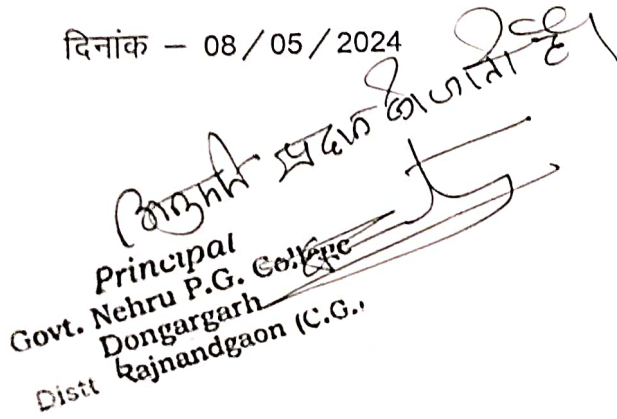 दिनांक – 08 / 05 / 2024
अनुमति प्रदान की जाती है।
Principal
Govt. Nehru P.G. College
Dongargarh
Distt Rajnandgaon (C.G.)